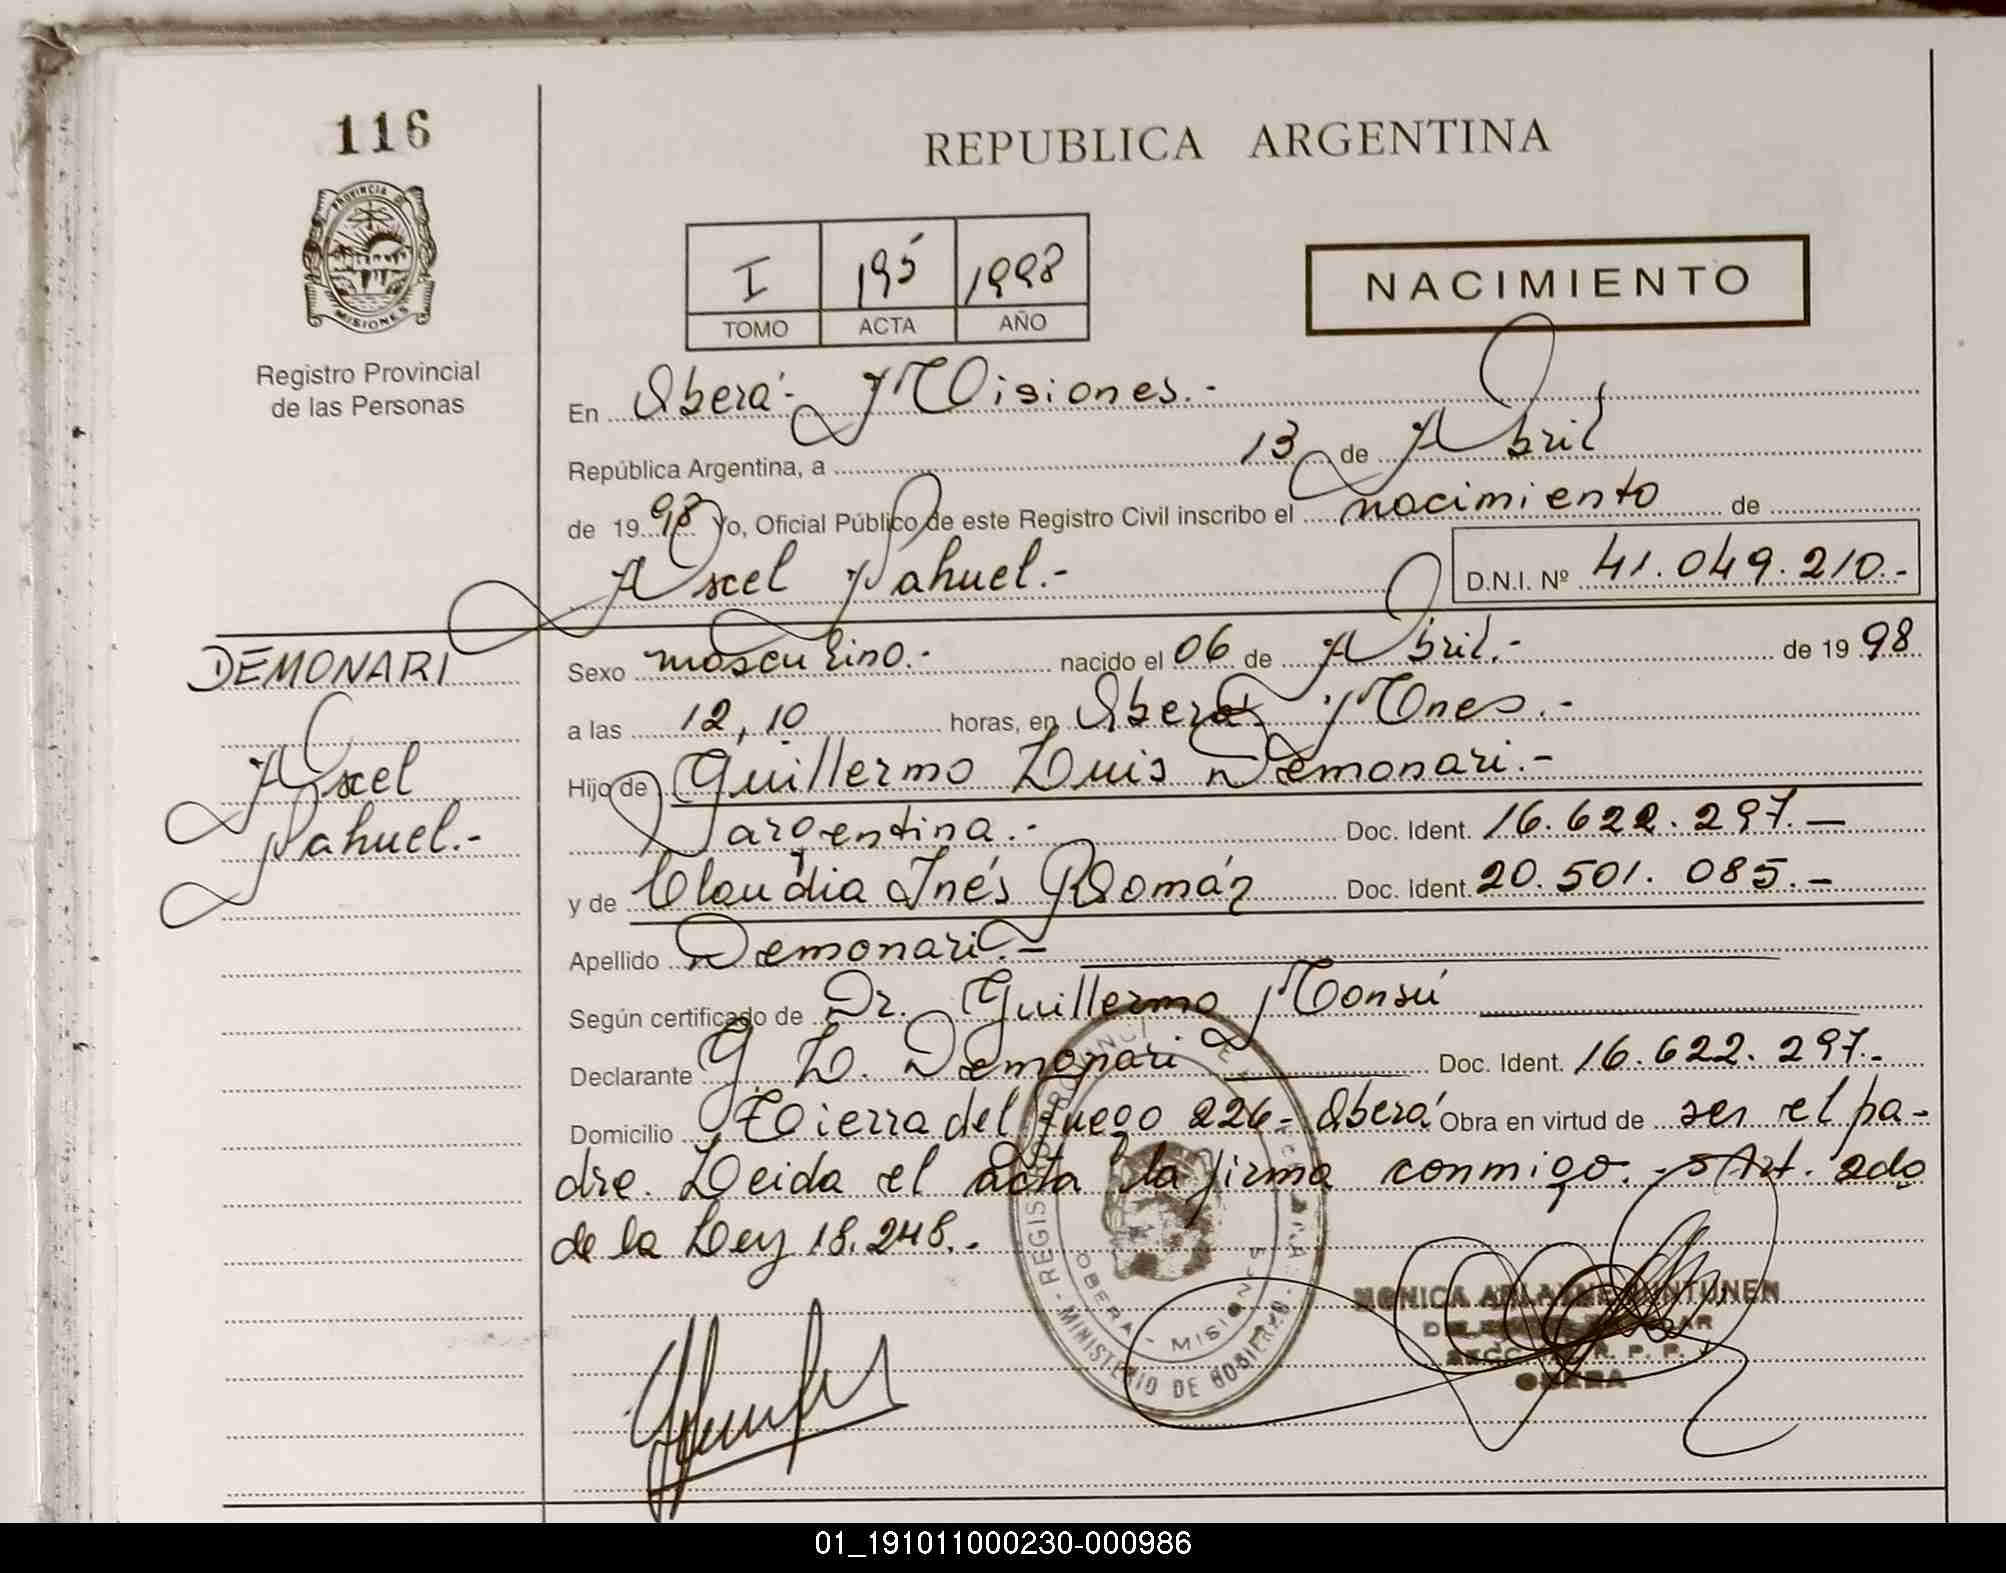 116
REPUBLICA ARGENTINA
PROVINCIA DE
MISIONES
Registro Provincial
de las Personas
I 195 1998
TOMO ACTA AÑO
NACIMIENTO
En Oberá - Misiones.-
República Argentina, a 13 de Abril
de 1998 Yo, Oficial Público de este Registro Civil inscribo el nacimiento de
Axel Nahuel.- D.N.I. Nº 41.049.210.-
DEMONARI
Axel
Nahuel.-
Sexo masculino.- nacido el 06 de Abril.- de 1998
a las 12,10 horas, en Oberá Mnes.-
Hijo de Guillermo Luis Demonari.-
argentina.- Doc. Ident. 16.622.297.-
y de Claudia Inés Román Doc. Ident. 20.501.085.-
Apellido Demonari.-
Según certificado de Dr. Guillermo Monsú
Declarante G. L. Demonari Doc. Ident. 16.622.297.-
Domicilio Tierra del Fuego 226- Oberá Obra en virtud de ser el pa-
dre. Leida el acta la firma conmigo.- Art. 2do
de la Ley 18.248.-
MINISTERIO DE GOBIERNO
OBERA - MISIONES
MONICA
OBERA
01_191011000230-000986